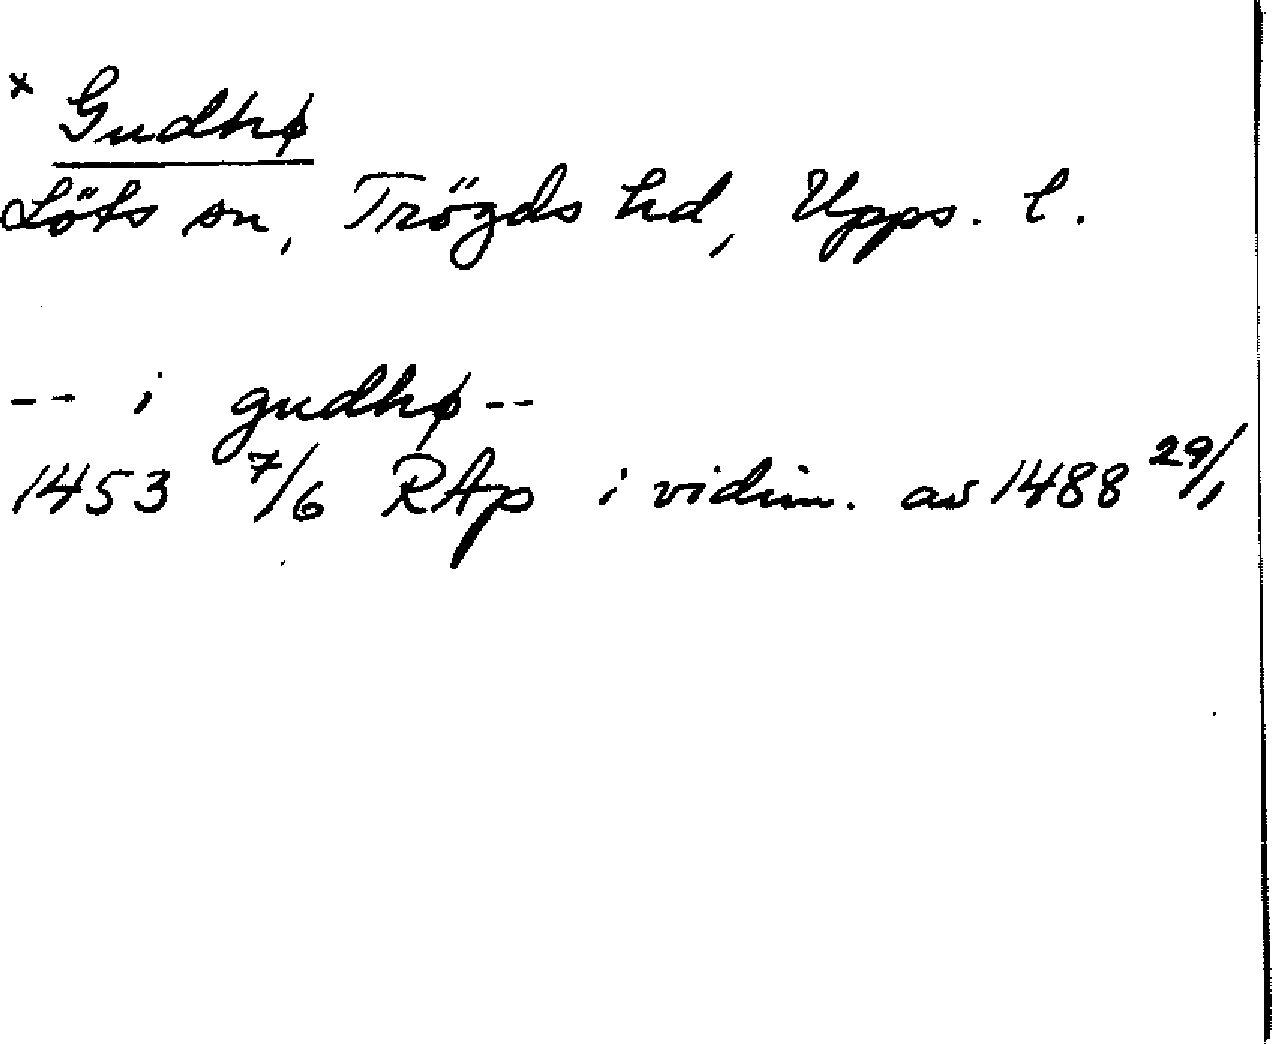 x Gudhø
Löts sn, Trögds hd, Upps. l.
-- i gudhø--
1453 7/6 RAp i vidim. av 1488 29/1